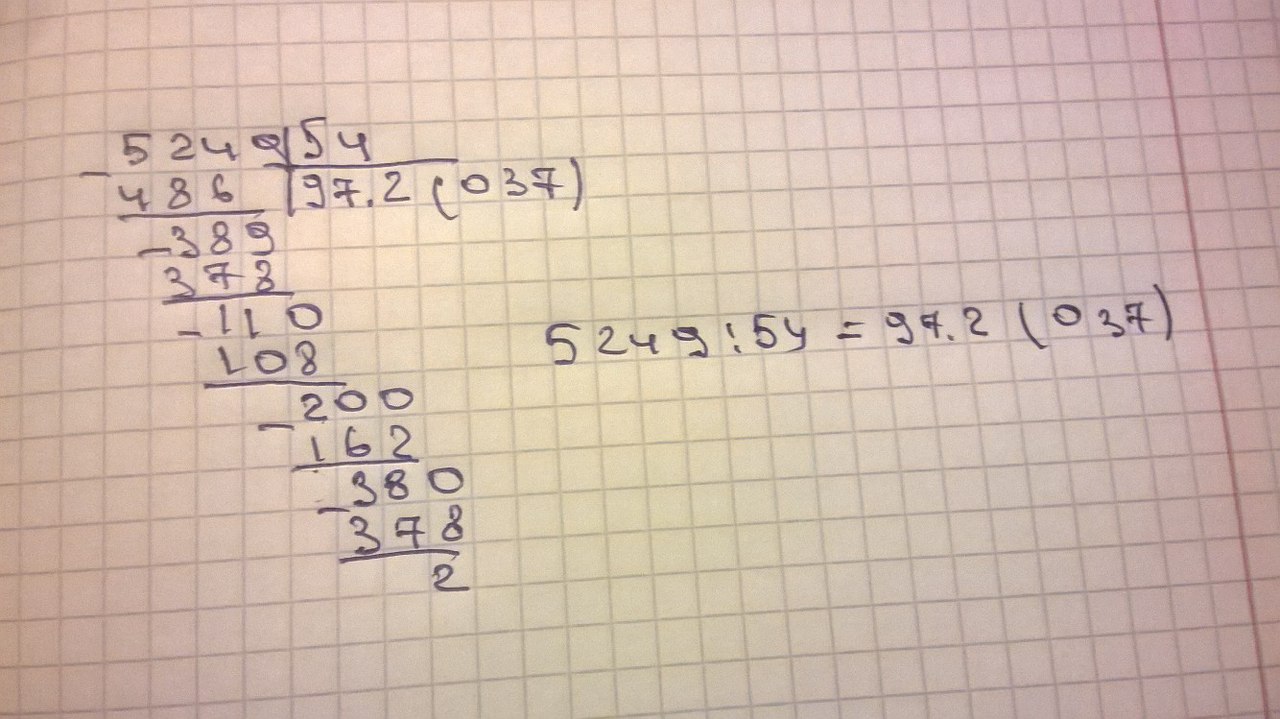 5249 54
- 486 97.2 (037)
- 389
378
- 110
108
- 200
162
- 380
378
2
5249:54 = 97.2 (037)